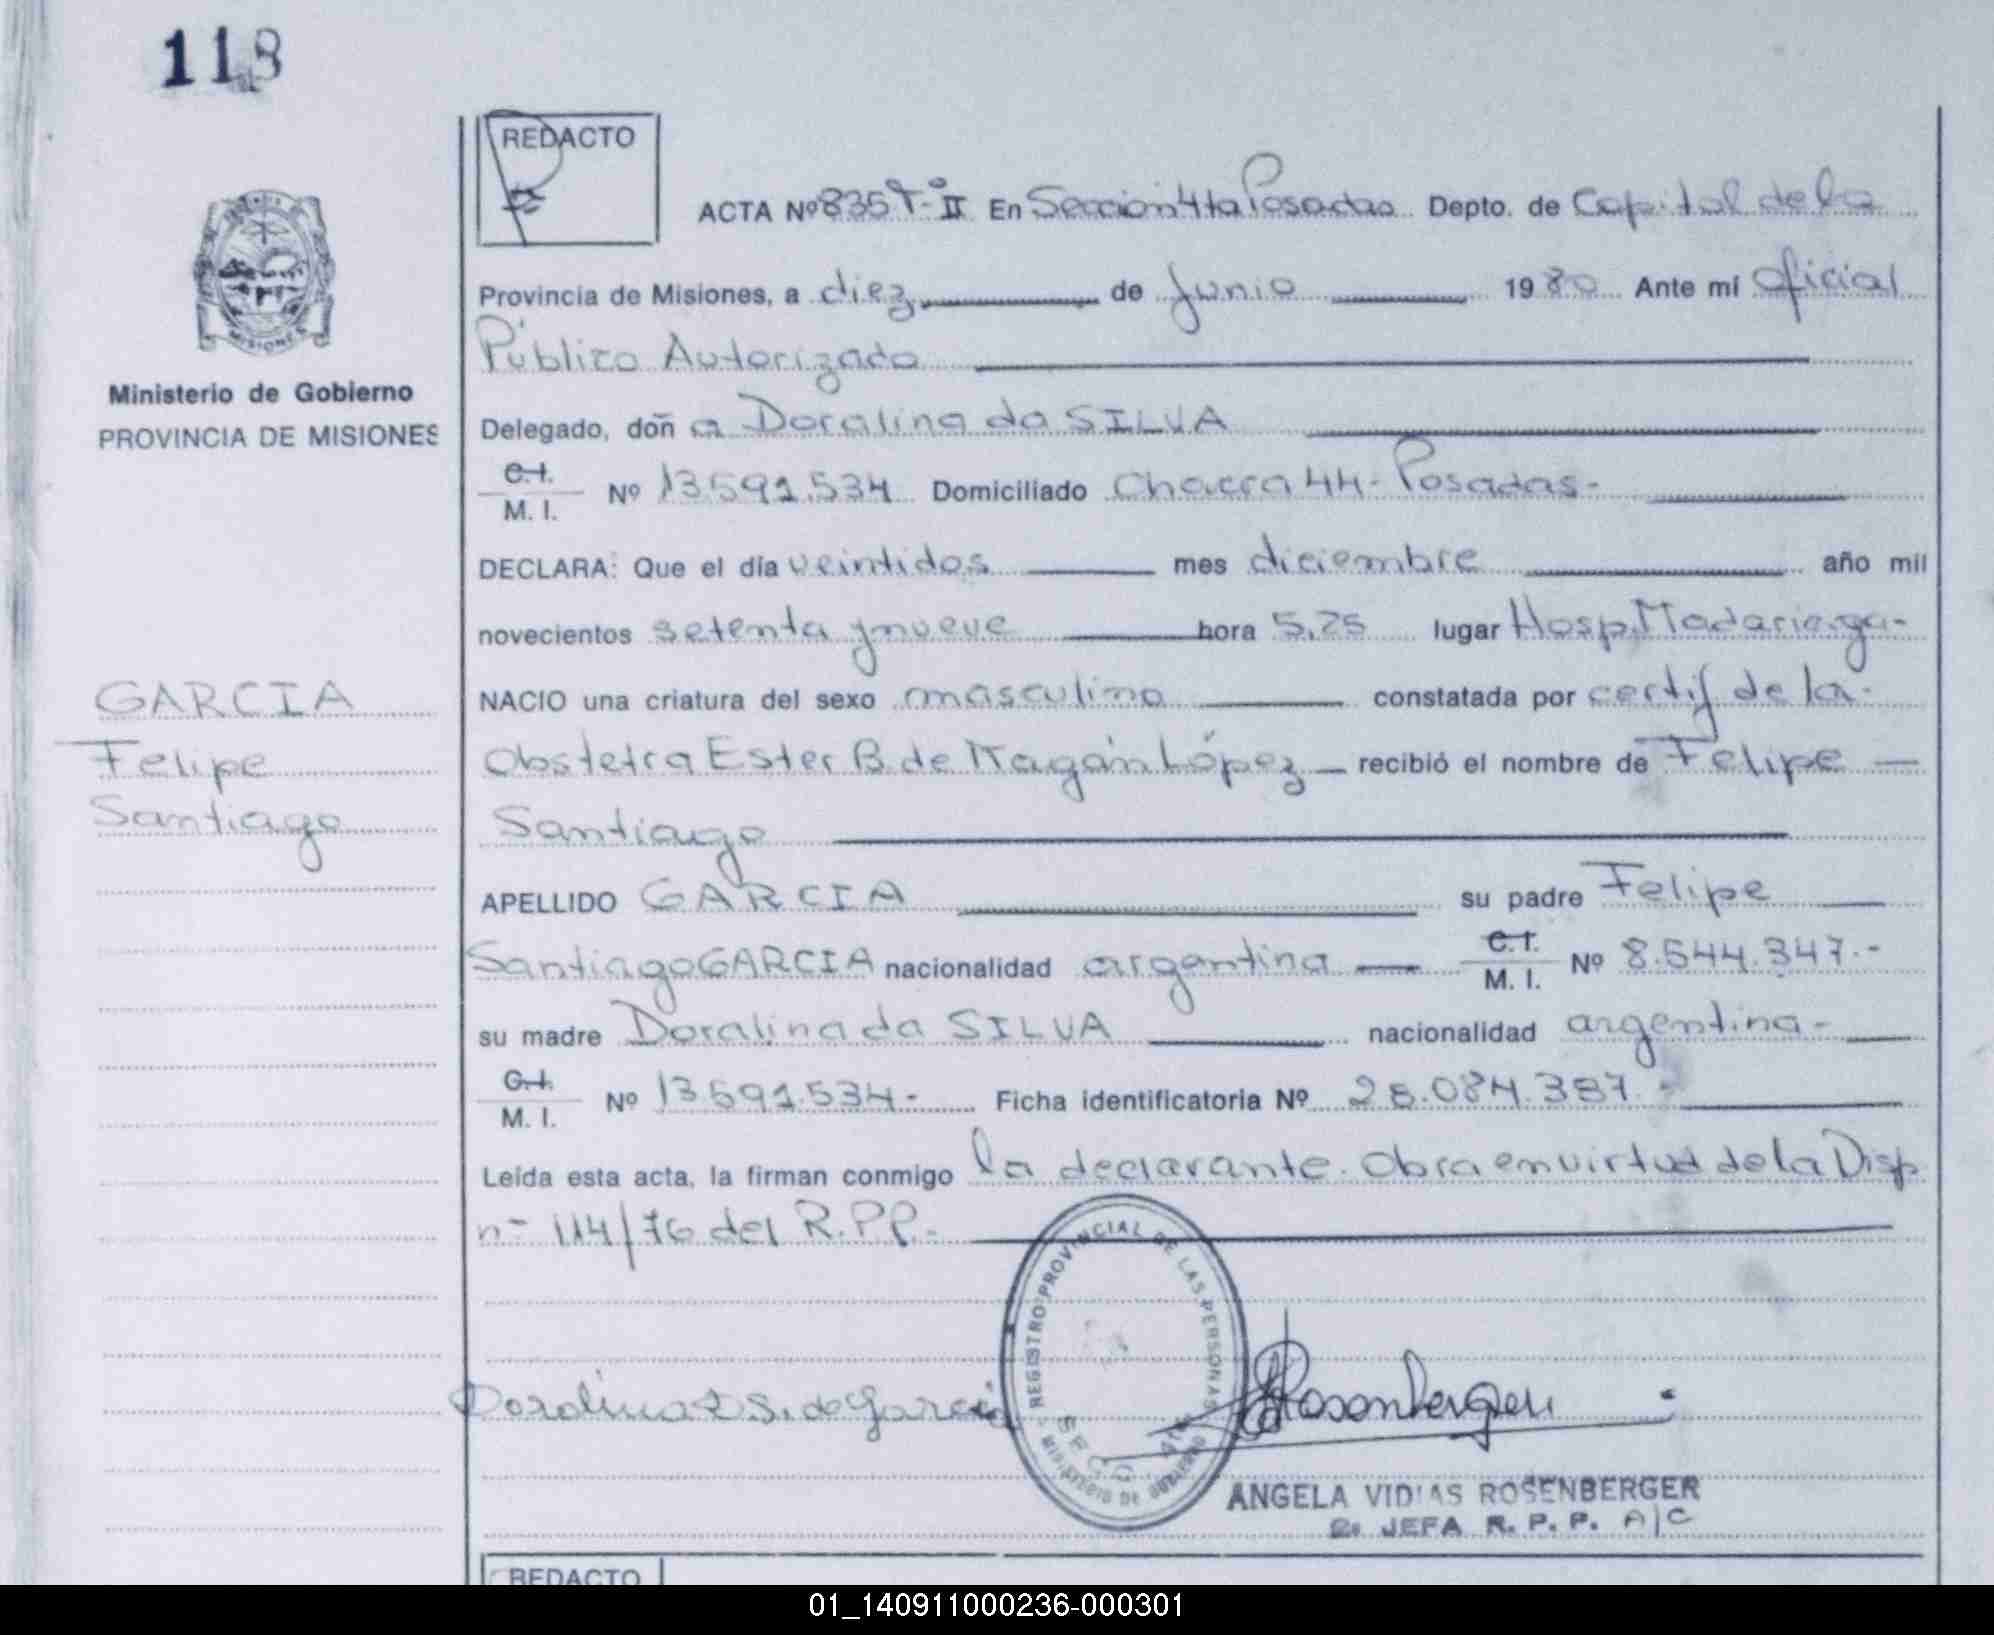 118
REDACTO
ACTA Nº 835 Tº II En Sección 4ta Posadas Depto. de Capital de la
Provincia de Misiones, a diez de Junio 1980 Ante mí Oficial
Público Autorizado
Ministerio de Gobierno
PROVINCIA DE MISIONES
Delegado, doñ a Doralina da SILVA
C.I.
M. I. Nº 13.591.534 Domiciliado Chacra 44 - Posadas -
DECLARA: Que el día veintidos mes diciembre año mil
novecientos setenta y nueve hora 5,25 lugar Hosp. Madariaga -
NACIO una criatura del sexo masculino constatada por certif de la
Obstetra Ester B. de Kagán López recibió el nombre de Felipe
Santiago
GARCIA
Felipe
Santiago
APELLIDO GARCIA su padre Felipe
Santiago GARCIA nacionalidad argentina C.I.
M. I. Nº 8.544.347.-
su madre Doralina da SILVA nacionalidad argentina -
C.I.
M. I. Nº 13.591.534 - Ficha identificatoria Nº 28.084.387.-
Leída esta acta, la firman conmigo la declarante. Obra en virtud de la Disp
nº 114/76 del R.P.P.-
REGISTRO PROVINCIAL DE LAS PERSONAS
MINISTERIO DE GOBIERNO
SECC 4ta
Doralina D S. de Garcia
Rosenberger
ANGELA VIDIAS ROSENBERGER
JEFA R. P. P. A/C
REDACTO
01_140911000236-000301